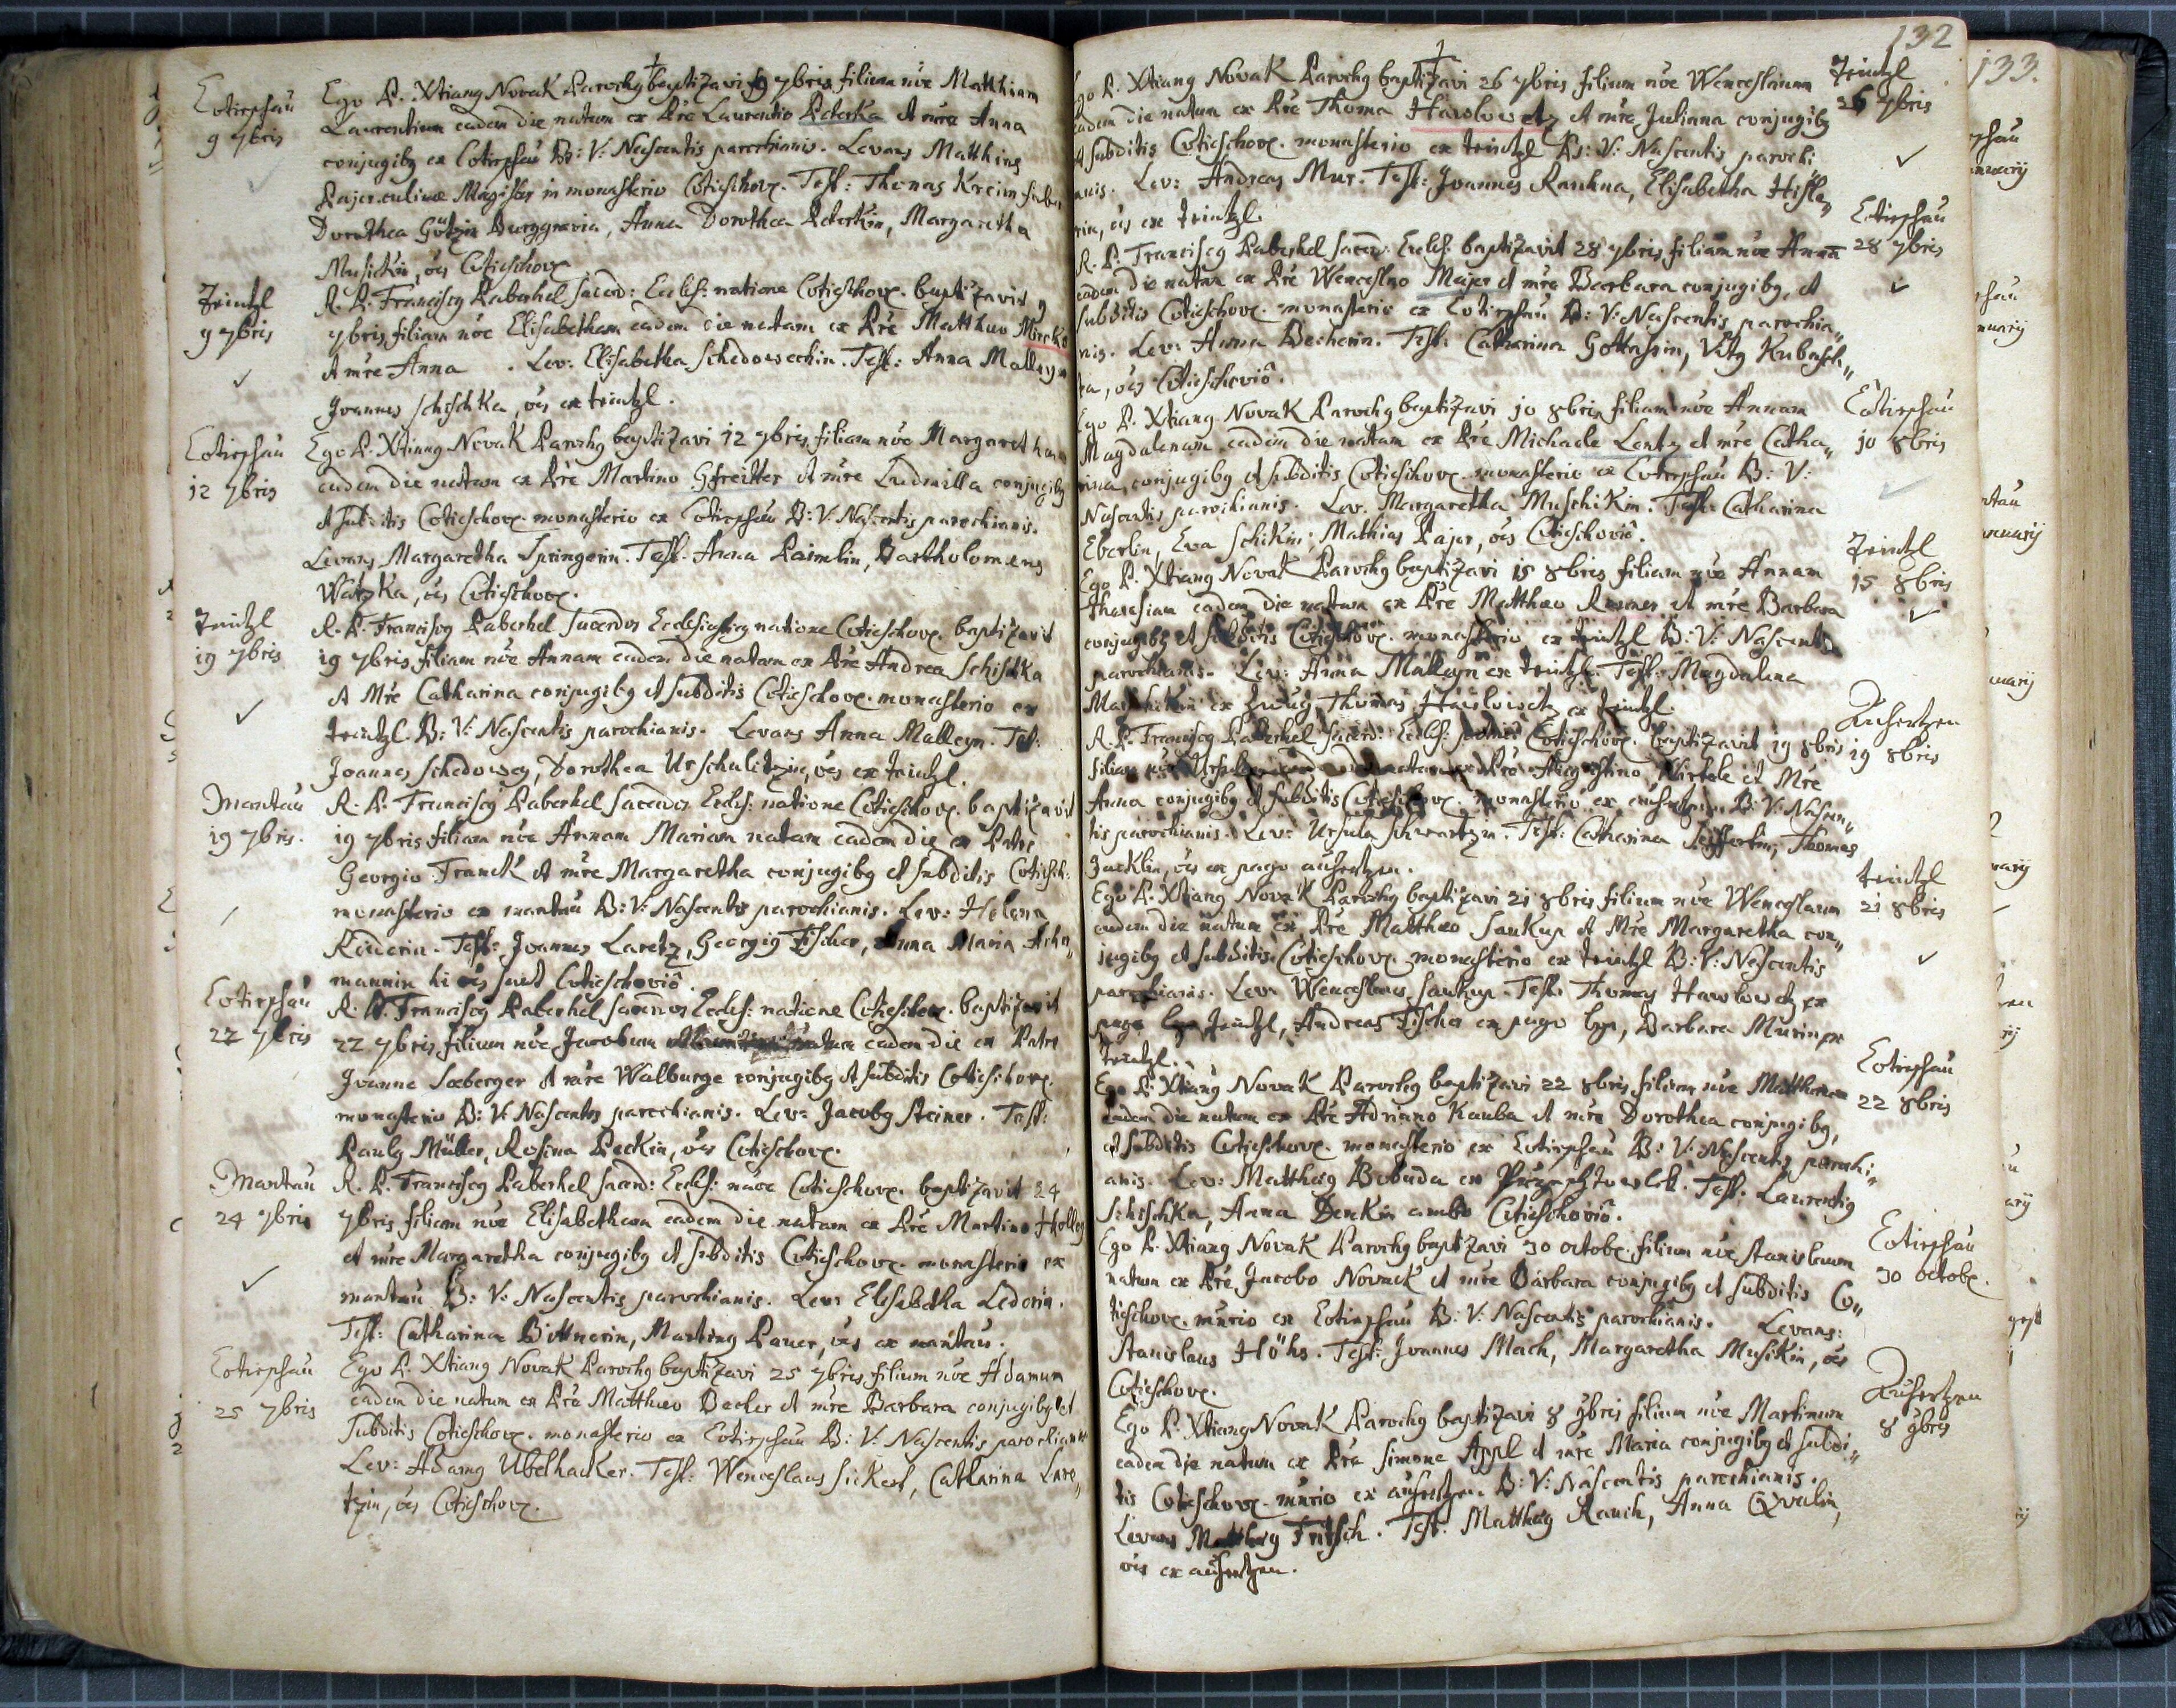 Cotiessau
9 7bris
Ego P. Xtiang Novak Parochg baptizavi 9 7bris filium nõe Matthiam
Laurentium eadem die natum ex Pre Laurentio Peterka et mre Anna
conjugibg ex Cotiessau B: V: Nascentis parochianis. Levans Matthias
Pajer culinae Magister in monasterio Cotieschov. Test: Thomas Kreim faber
Dorothea Götzin Burggravia, Anna Dorothea Peterkin, Margaretha
Musickin, oes Cotieschov.
Teintzl
9 7bris
R. P. Franciscg Paberhel sacerd: Eccles: natione Cotieschov. baptizavit 9
7bris filiam nõe Elisabetham eadem die natam ex Pre Matthaeo
et mre Anna . Lev: Elisabetha Schedoweckin. Test: Anna Malleyn
Joannes Schischka, oes ex teintzl.
Cotiessau
12 7bris
Ego P. Xtiang Novak Parochg baptizavi 12 7bris filiam nõe Margaretham
eadem die natam ex Pre Martino Gfreitter et mre Ludmilla conjugibg
et subditis Cotieschov. monasterio ex Cotiessau B: V: Nascentis parochianis.
Levans Margaretha Springerin. Test: Anna Paimlin, Bartholomeus
Watzka, oes Cotieschov.
Teintzl
19 7bris
R. P. Franciscg Paberhel sacerdos Ecclesiasticg natione Cotieschov. baptizavit
19 7bris filiam nõe Annam eadem die natam ex Pre Andrea Schischka
et Mre Catharina conjugibg et subditis Cotieschov. monasterio ex
teintzl B: V: Nascentis parochianis. Levans Anna Malleyn. Test:
Joannes Schedowey, Dorothea Urschulitzin, oes ex teintzl.
Mantau
19 7bris.
R. P. Franciscg Paberhel sacerdos Eccles: natione Cotieschov. baptizavit
19 7bris filiam nõe Annam Mariam natam eadem die ex Patre
Georgio Franck et mre Margaretha conjugibg et subditis Cotiesch:
monasterio ex mantau B: V: Nascentis parochianis. Lev: Helena
Rederin. Test: Joannes Laretz, Georgig Fischer, Anna Maria Acher„
mannin hi oes sunt Cotieschovio.
Cotiessau
22 7bris
R. P. Franciscg Paberhel sacerdos Eccles: natione Cotieschov. baptizavit
22 7bris filium nõe Jacobum natum eadem die ex Patre
Joanne Seeberger et mre Walburga conjugibg et subditis Cotieschov.
monasterio B: V: Nascentis parochianis. Lev: Jacobg Steiner. Test:
Paulg Müller, Rosina Peckin, oes Cotieschov.
Mantau
24 7bris
R. P. Franciscg Paberhel sacerd: Eccles: naoe Cotieschov. baptizavit 24
7bris filiam nõe Elisabetham eadem die natam ex Pre Martino Holley
et mre Margaretha conjugibg et subditis Cotieschov. monasterio ex
mantau B: V: Nascentis parochianis. Lev: Elisabetha Lederin.
Test: Catharina Bittnerin, Marting Paner, oes ex mantau.
Cotiessau
25 7bris
Ego P. Xtiang Novak Parochg baptizavi 25 7bris filium nõe Adamum
eadem die natum ex Pre Matthaeo Becher et mre Barbara conjugibg et
subditis Cotieschov. monasterio ex Cotiessau B: V: Nascentis parochianis
Lev: Adamg Ubelhacker. Test: Wenceslaus Sickert, Catharina Lare„
tzin, oes Cotieschov.
132
133.
Teintzl
26 7bris
Ego P. Xtiang Novak Parochg baptizavi 26 7bris filium nõe Wenceslaum
eadem die natum ex Pre Thoma Hawlowetz et mre Julianna conjugibg
et subditis Cotieschov. monasterio ex teintzl B: V: Nascentis parochi
anis. Lev: Andreas Mur. Test: Joannes Rauhna, Elisabetha Hisle„
rin, oes ex teintzl.
Cotiessau
28 7bris
R. P. Franciscg Paberhel sacerd: Eccles: baptizavit 28 7bris filiam nõe Annã
eadem die natam ex Pre Wenceslao Majer et mre Barbara conjugibg, et
subditis Cotieschov. monasterio ex Cotiessau B: V: Nascentis parochia„
nis. Lev: Anna Becherin. Test: Catharina Gottassin, Vitg Kubasch„
ta, oes Cotieschovio.
Cotiessau
10 8bris
Ego P. Xtiang Novak Parochg baptizavi 10 8bris filiam nõe Annam
Magdalenam eadem die natam ex Pre Michaele Lentz et mre Catha„
rina, conjugibg et subditis Cotieschov. monasterio ex Cotiessau B: V:
Nascentis parochianis. Lev. Margaretha Muschikin. Test: Catharina
Eberlin, Eva Schikin, Mathias Pajer, oes Cotieschovio.
Teintzl
15 8bris
Ego P. Xtiang Novak Parochg baptizavi 15 8bris filiam nõe Annam
Theresiam eadem die natam ex Pre Matthaeo et mre Barbara
conjugibg et subditis Cotieschov. monasterio ex teintzl B: V: Nascentis
parochianis. Lev: Anna Malleyn ex teintzl. Test: Magdalena
ex Thomas Hawlowetz ex teintzl.
Auhertzen
19 8bris
R. P. Franciscg Paberhel sacerd: Eccles: Cotieschov. baptizavit 19 8bris
filiam nõe Pre Augustino et Mre
Anna conjugibg et subditis Cotieschov. monasterio ex auhertzen B: V: Nascen„
tis parochianis. Lev: Ursula Schwartzin. Test: Catharina Seiffertin, Thomas
Jacklin, oes ex pago auhertzen.
teintzl
21 8bris
Ego P. Xtiang Novak Parochg baptizavi 21 8bris filium nõe Wenceslaum
eadem die natum ex Pre Matthaeo Saukup et Mre Margaretha con„
jugibg et subditis Cotieschov. monasterio ex teintzl B: V: Nascentis
parochianis. Lev: Wenceslaus Saukup. Test: Thomas Hawlowetz ex
pago teintzl, Andreas Fischer ex pago, Barbara Murin ex
teintzl.
Cotiessau
22 8bris
Ego P. Xtiang Novak Parochg baptizavi 22 8bris filium nõe Matthaeum
eadem die natum ex Pre Adriano Kauba et mre Dorothea conjugibg,
et subditis Cotieschov. monasterio ex Cotiessau B: V: Nascentis parochi„
anis. Lev: Matthaeg Bobuda ex. Test: Laurentig
Schischka, Anna Denkin ambo Cotieschovio.
Cotiessau
30 octobr.
Ego P. Xtiang Novak Parochg baptizavi 30 octobr. filium nõe Stanislaum
natum ex Pre Jacobo Novack et mre Barbara conjugibg et subditis Co„
tieschov. mnrio ex Cotiessau B: V: Nascentis parochianis. Levans:
Stanislaus Höhs. Test: Joannes Mach, Margaretha Musikin, oes
Cotieschov.
Auhertzen
8 9bris
Ego P. Xtiang Novak Parochg baptizavi 8 9bris filium nõe Martinum
eadem die natum ex Pre Simone Appl et mre Maria conjugibg et subdi„
tis Cotieschov. mnrio ex auhertzen B: V: Nascentis parochianis.
Levans Matthaeg Fritsch. Test: Matthaeg Rauch, Anna Qvalin,
oes ex auhertzen.